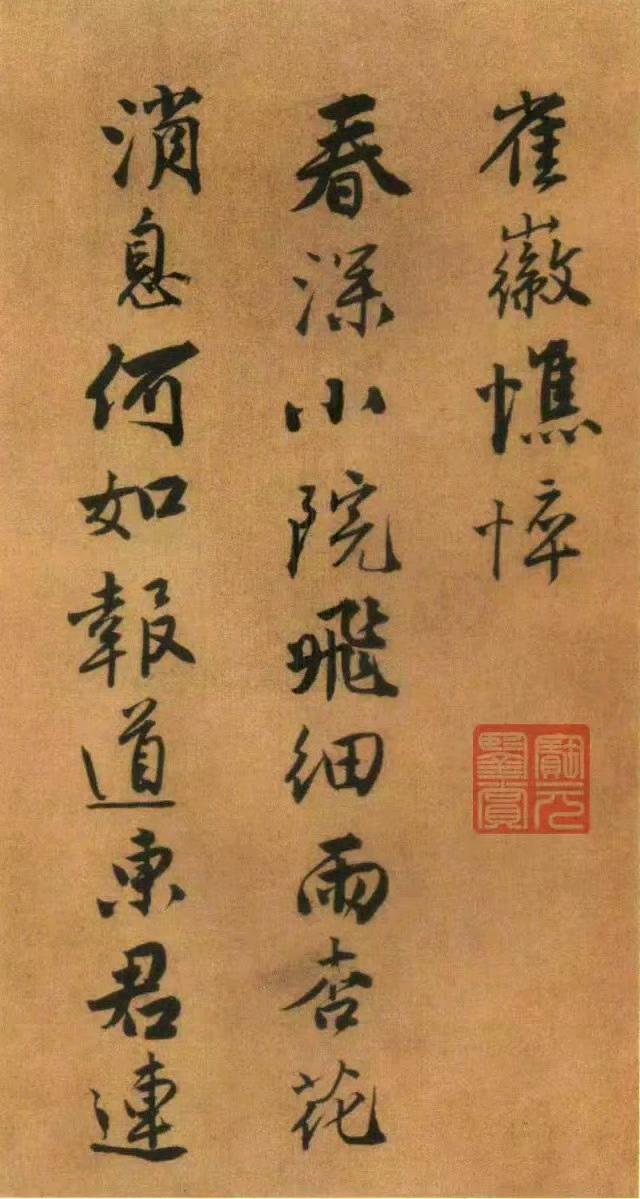 崔徽憔悴
春深小院飛細雨杏花
消息何如報道東君連
元
鑒賞